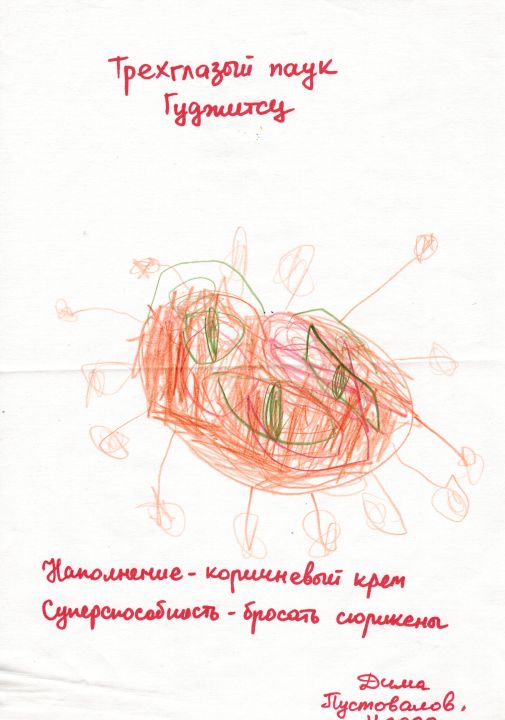 Трехглазый паук
Гуджитсу
Наполнение - коричневый крем
Суперспособность - бросать сюрикены
Дима
Пустовалов,